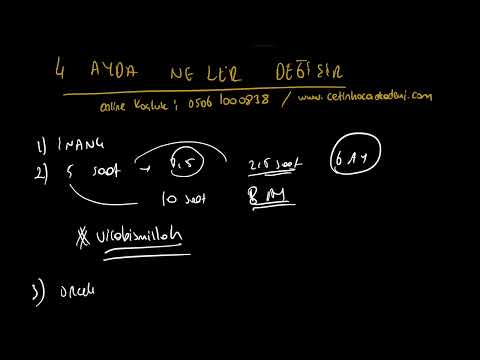 4 AYDA NELER DEĞİŞİR
online Koçluk : 0506 1000838 / www.cetinhocaakademi.com
1) İNANÇ
2) 5 saat → 7,5 2,5 saat 6 AY
10 saat 8 AY
* Vicabismillah
3)